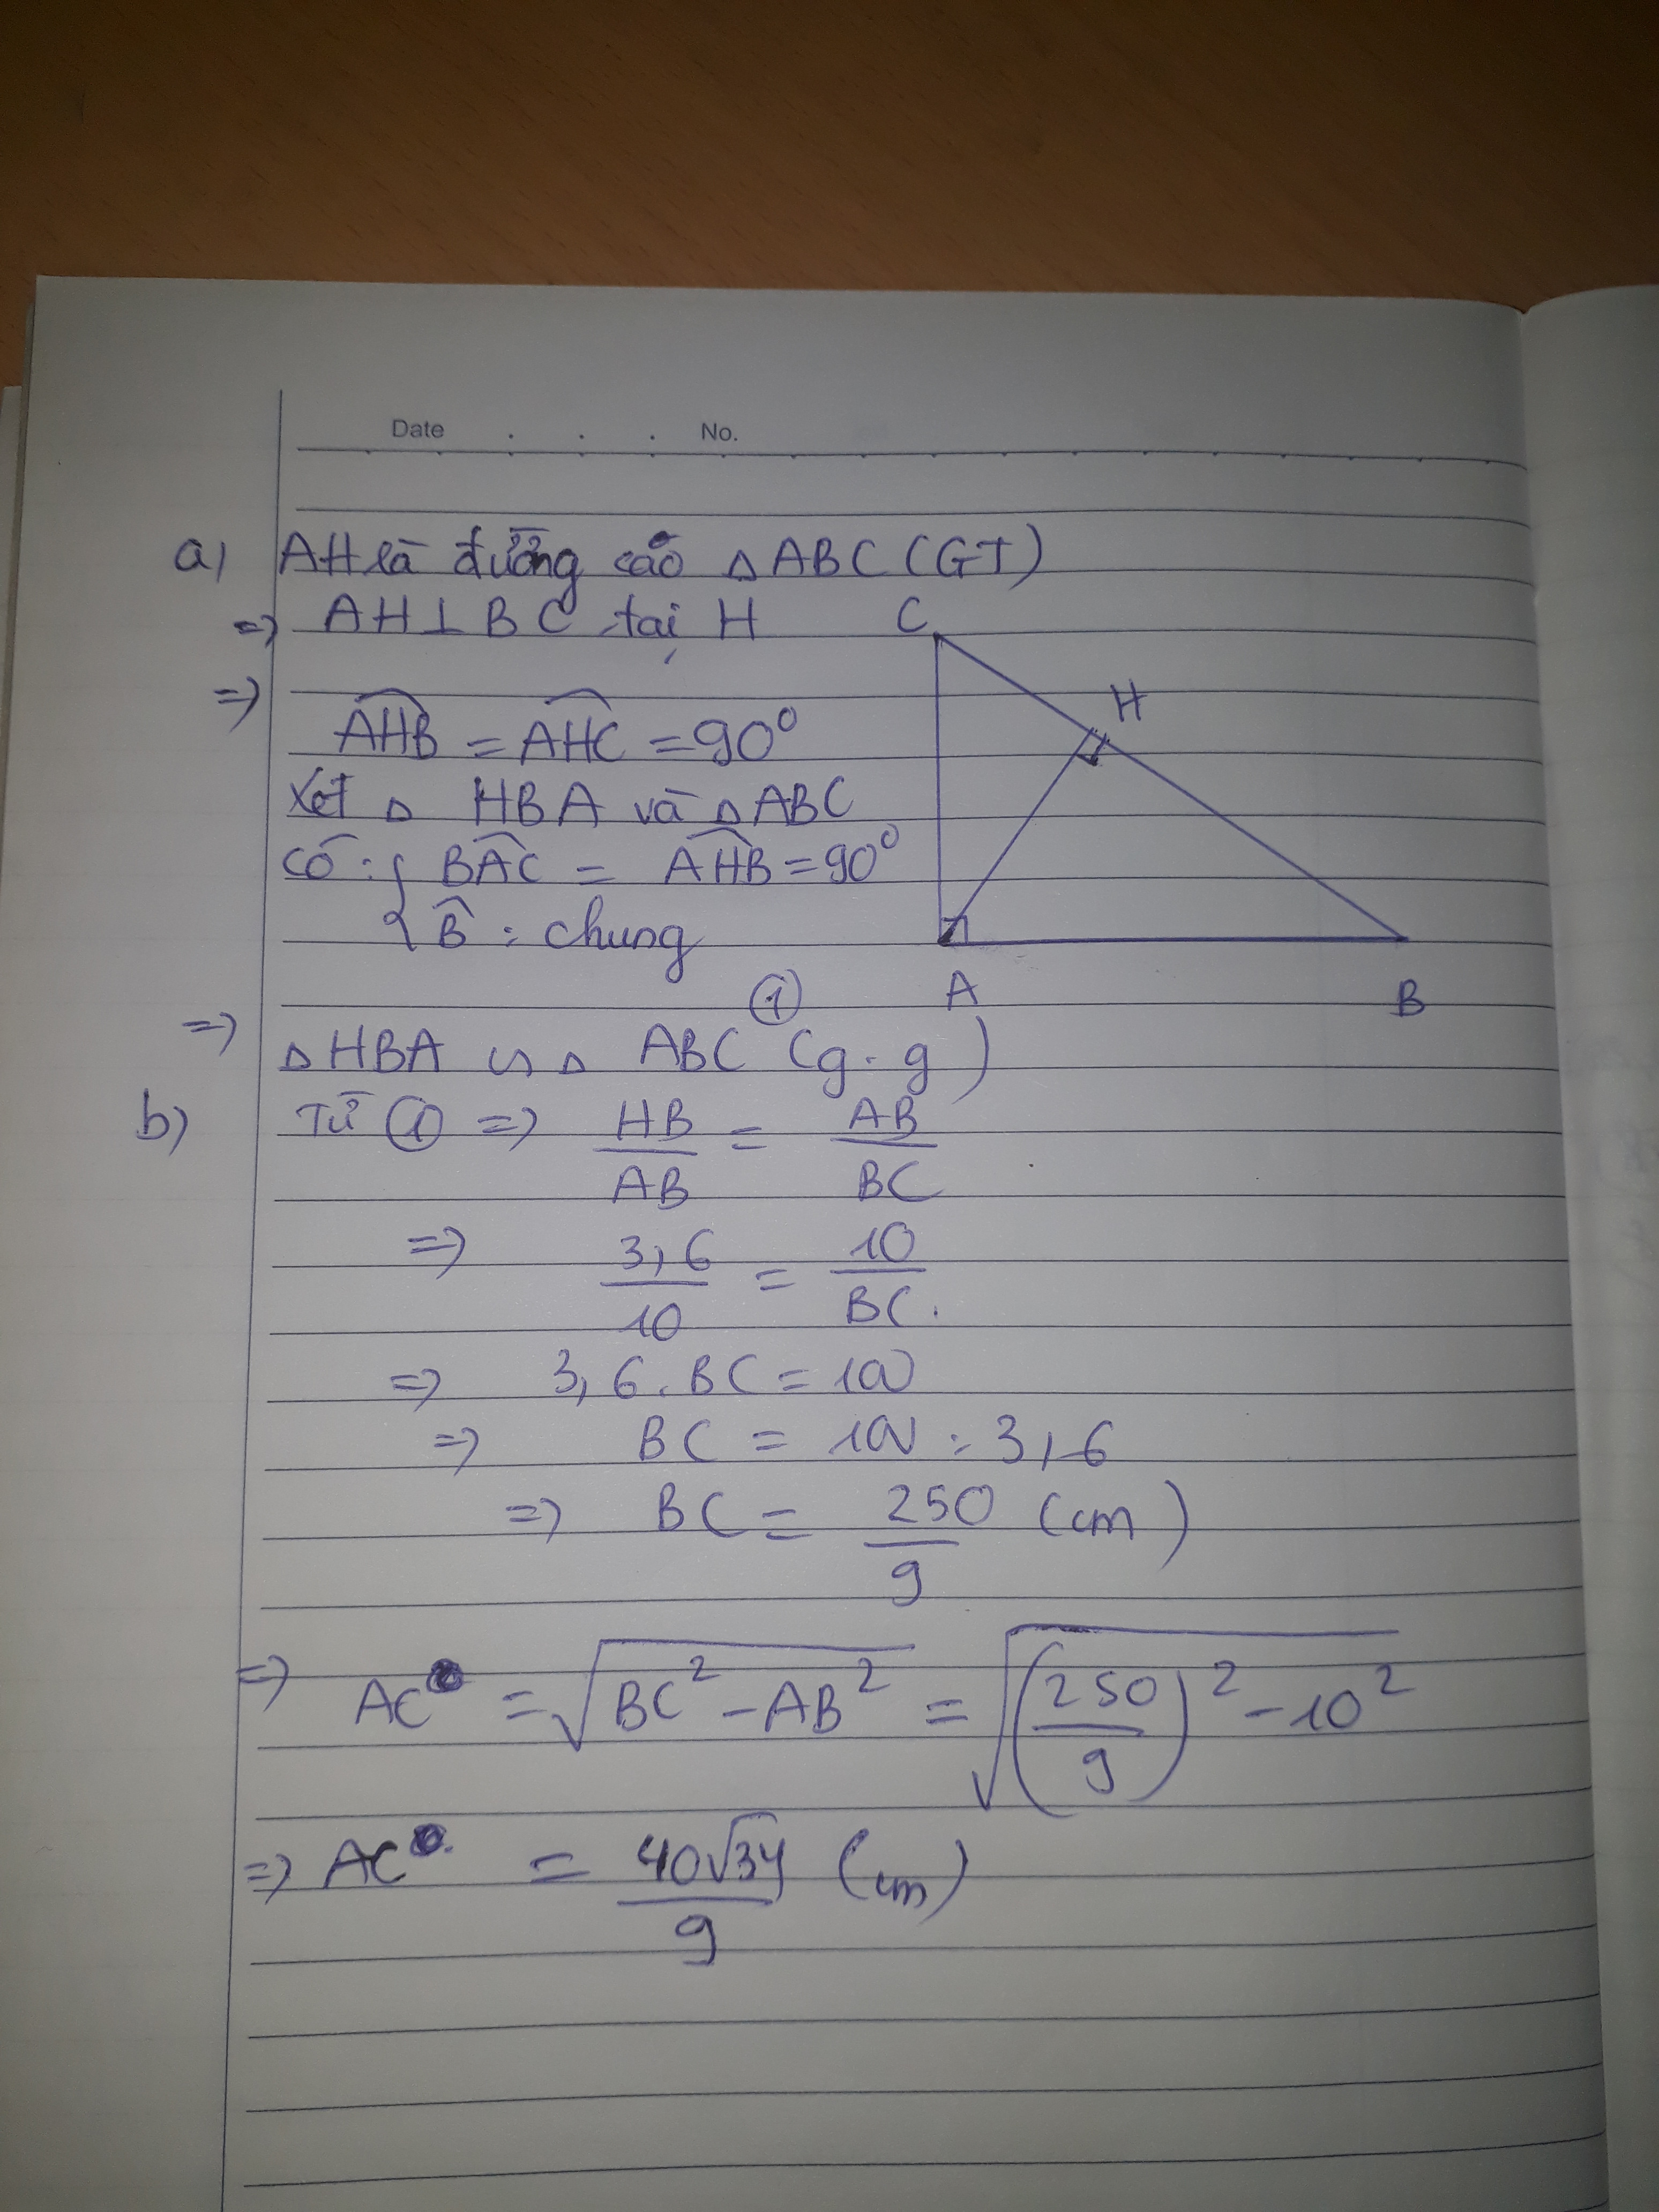 Date . . . No.
a) AH là đường cao △ ABC (GT)
=> AH ⊥ BC tại H
C
=>
H
AHB = AHC = 90⁰
Xét △ HBA và △ ABC
có : { BAC = AHB = 90⁰
B : chung
A
B
①
=> △ HBA ∽ △ ABC (g.g)
b) Từ ① => HB/AB = AB/BC
=> 3,6/10 = 10/BC.
=> 3,6 . BC = 100
=> BC = 100 : 3,6
=> BC = 250/9 (cm)
=> AC = √(BC² - AB²) = √((250/9)² - 10²)
=> AC = 40√34/9 (cm)